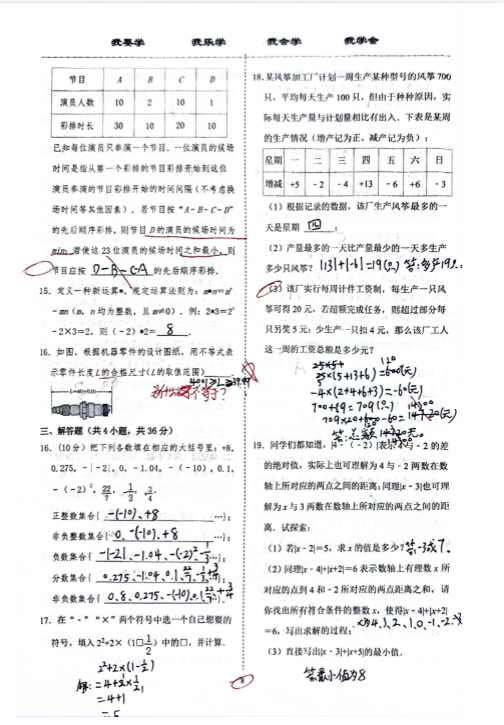 我要学 我乐学 我会学 我学会
节目 A B C D
演员人数 10 2 10 1
彩排时长 30 10 20 10
已知每位演员只参演一个节目.一位演员的候场
时间是指从第一个彩排的节目彩排开始到这位
演员参演的节目彩排开始的时间间隔(不考虑换
场时间等其他因素).若节目按“A-B-C-D”
的先后顺序彩排,则节目D的演员的候场时间为
min;若使这23位演员的候场时间之和最小,则
节目应按 D-B-C-A 的先后顺序彩排.
15. 定义一种新运算*,规定运算法则为:m*n=mⁿ
-mn(m,n均为整数,且m≠0).例:2*3=2³
-2×3=2,则(-2)*2= 8 .
16. 如图,根据机器零件的设计图纸,用不等式表
示零件长度L的合格尺寸(L的取值范围)
三、解答题(共4小题,共36分)
16.(10分)把下列各数填在相应的大括号里:+8,
0.275,-|-2|,0,-1.04,-(-10),0.1,
-(-2)²,22/7,-1/3,+3/4
正整数集合{ -(-10)、+8 …};
非负整数集合{ 0、-(-10)、+8 …};
负数集合{ -|-2|、-1.04、-(-2)²、-1/3 …};
分数集合{ 0.275、-1.04、0.1、22/7、-1/3、+3/4
非负数集合{ 0、8、0.275、-(-10)、0.1、22/7、+3/4
17. 在“-”“×”两个符号中选一个自己想要的
符号,填入2²+2×(1□1/2)中的□,并计算.
2²+2×(1-1/2)
解:=4+2×1/2
=4+1
=5
18. 某风筝加工厂计划一周生产某种型号的风筝700
只,平均每天生产100只,但由于种种原因,实
际每天生产量与计划量相比有出入.下表是某周
的生产情况(增产记为正、减产记为负):
星期 一 二 三 四 五 六 日
增减 +5 -2 -4 +13 -6 +6 -3
(1)根据记录的数据,该厂生产风筝最多的一
天是星期 四 ;
(2)产量最多的一天比产量最少的一天多生产
多少只风筝? |13|+|-6|=19(只) 答:多产19只.
(3)该厂实行每周计件工资制,每生产一只风
筝可得20元,若超额完成任务,则超过部分每
只另奖5元;少生产一只扣4元,那么该厂工人
这一周的工资总额是多少元?
25×(5+13+6)=600(元)
-4×(2+4+6+3)=-60(元)
700+9=709(只)
19. 同学们都知道,|4-(-2)|表示4与-2的差
的绝对值,实际上也可理解为4与-2两数在数
轴上所对应的两点之间的距离;同理|x-3|也可理
解为x与3两数在数轴上所对应的两点之间的距
离.试探索:
(1)若|x-2|=5,求x的值是多少? 答:-3或7.
(2)同理|x-4|+|x+2|=6表示数轴上有理数x所
对应的点到4和-2所对应的两点距离之和,请
你找出所有符合条件的整数x,使得|x-4|+|x+2|
=6,写出求解的过程; x为4、3、2、1、0、-1、-2.
(3)直接写出|x-3|+|x+5|的最小值.
答:最小值为8